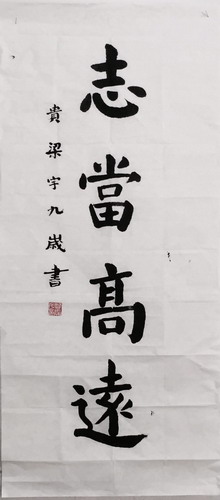 志當高遠
貴梁宇九歲書